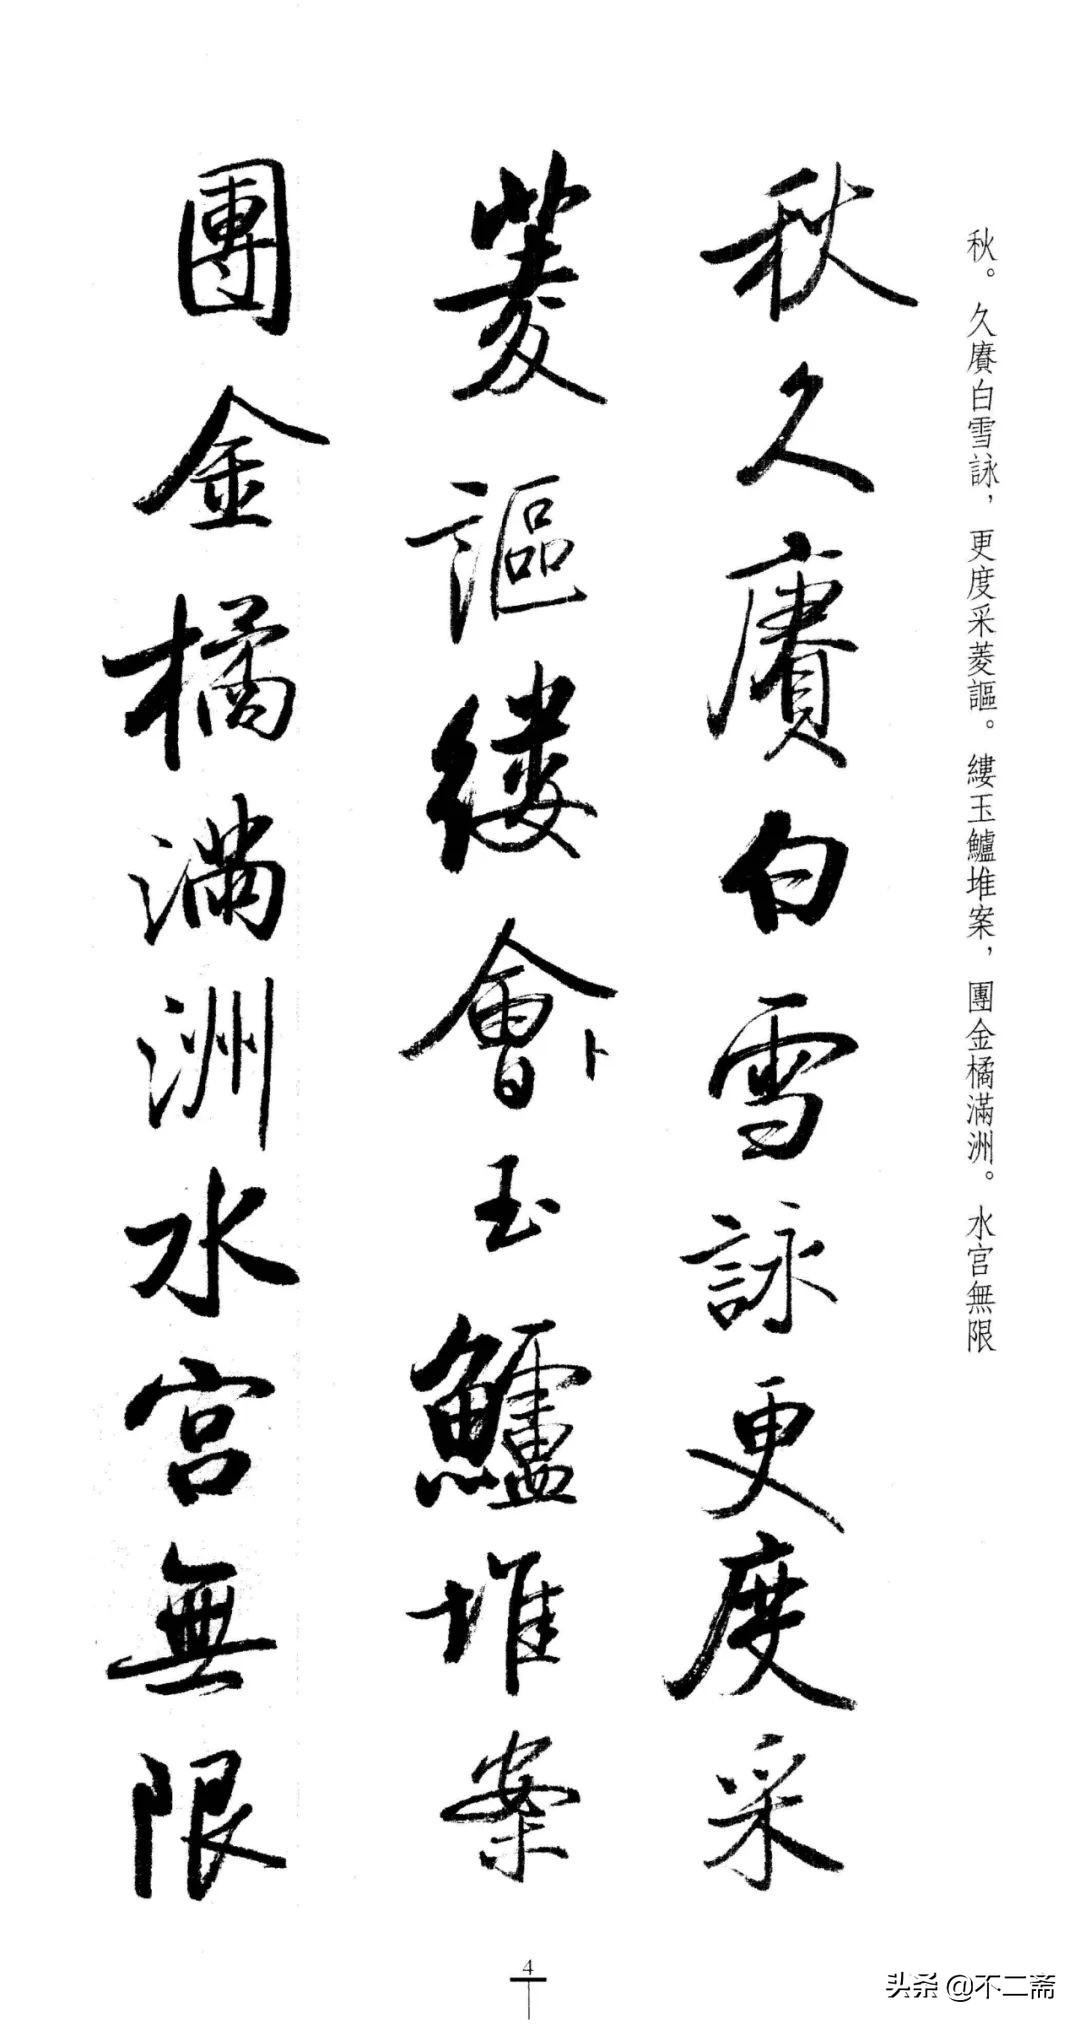 秋。久賡白雪詠，更度采菱謳。縷玉鱸堆案，團金橘滿洲。水宮無限
秋久賡白雪詠更度采
菱謳縷會卜玉鱸堆案
團金橘滿洲水宮無限
4
头条 @不二斋